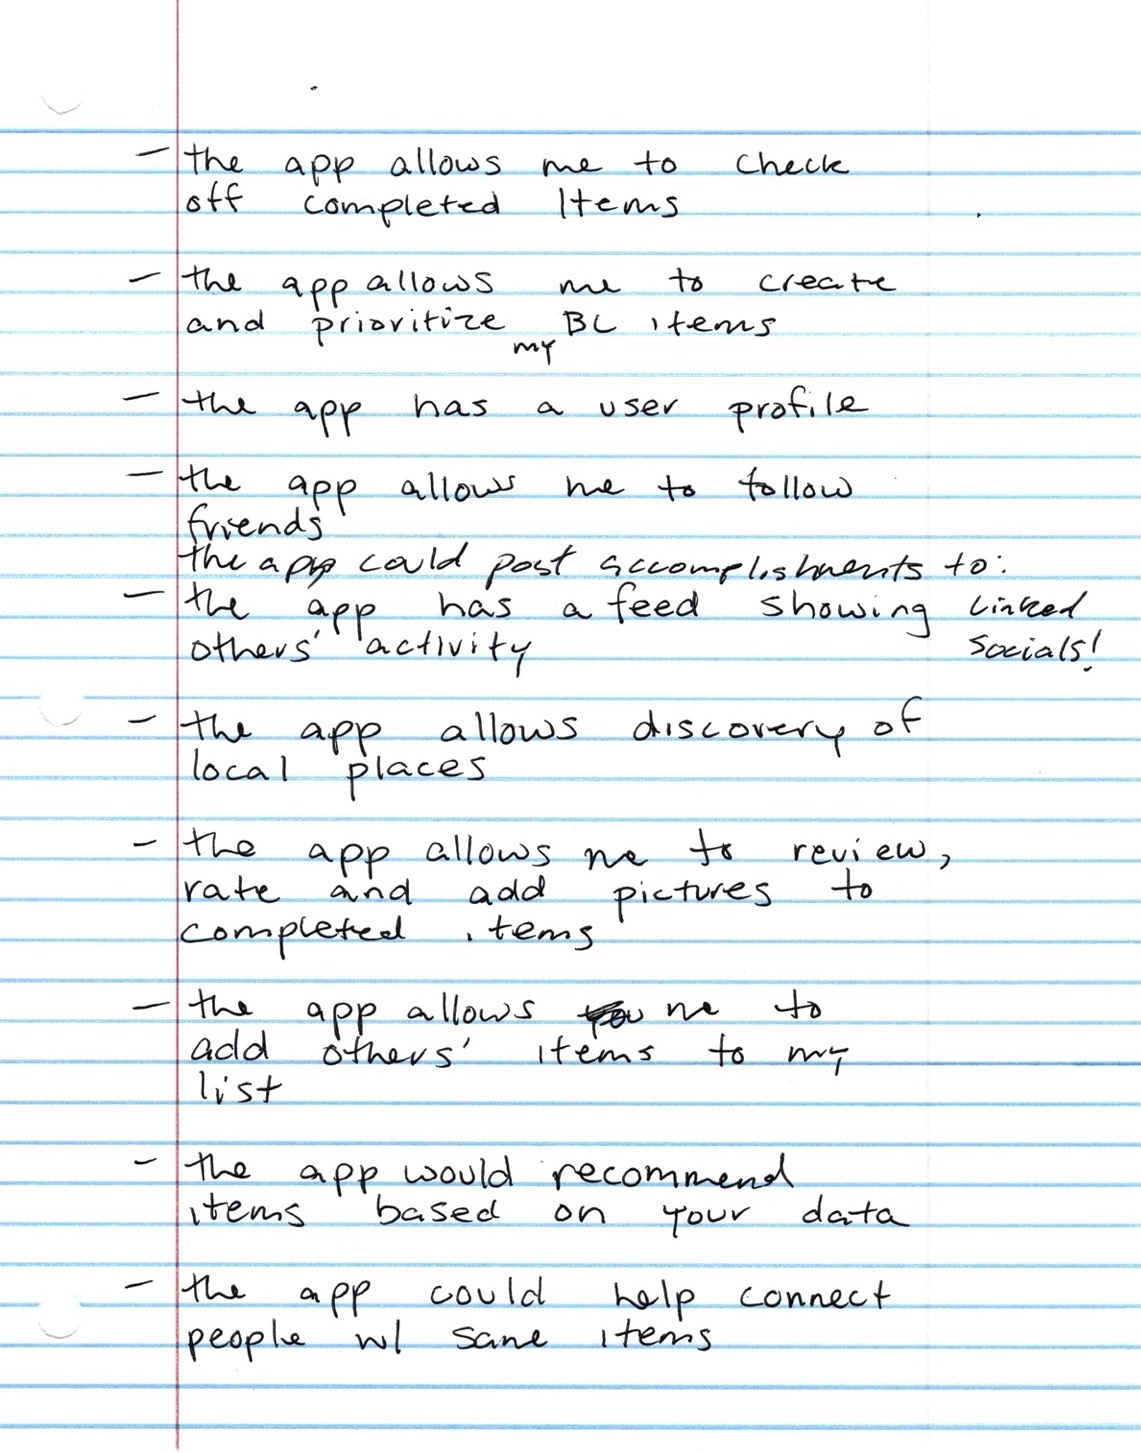 - the app allows me to check
off completed Items
- the app allows me to create
and prioritize my BL items
- the app has a user profile
- the app allows me to follow
friends
the app could post accomplishments to:
linked
socials!
- the app has a feed showing
others' activity
- the app allows discovery of
local places
- the app allows me to review,
rate and add pictures to
completed items
- the app allows me to
add others' items to my
list
- the app would recommend
items based on your data
- the app could help connect
people w/ same items